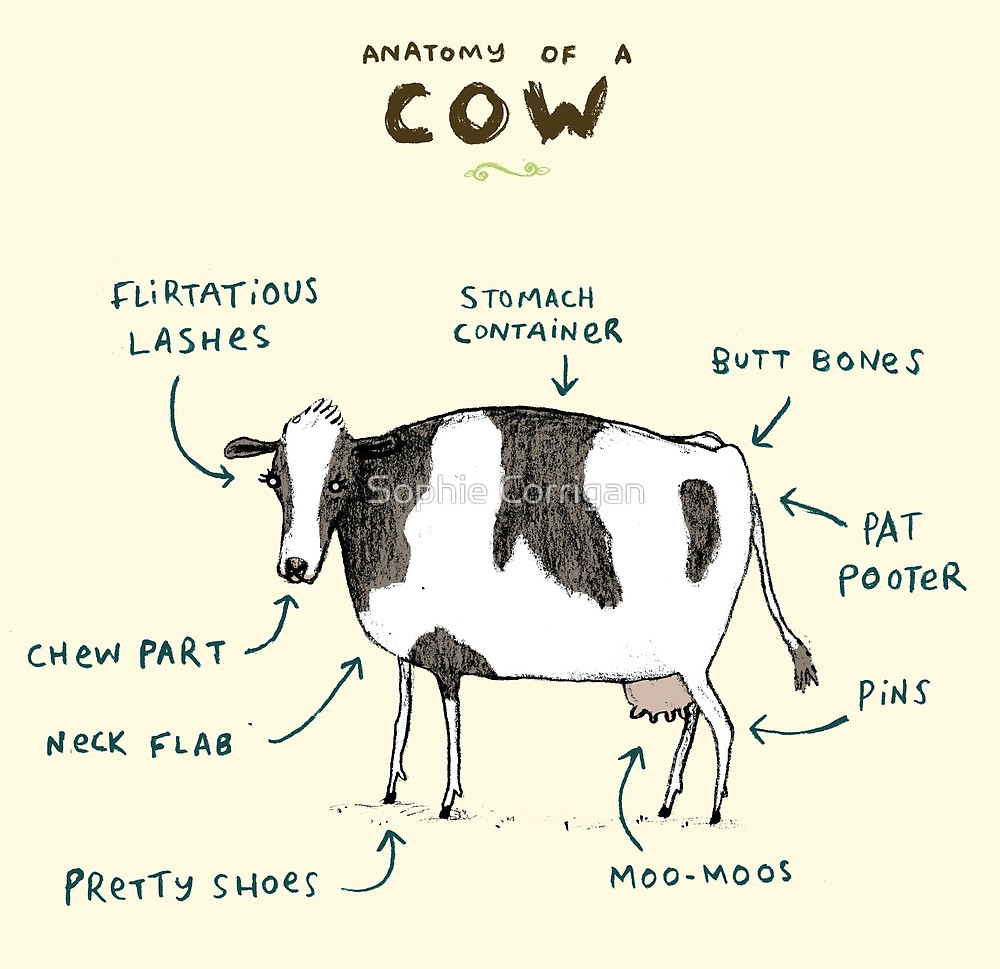 ANATOMY OF A
COW
FLiRTATiOUS
LASHeS
STOMACH
CONTAiNER
BUTT BONES
Sophie Corrigan
PAT
POOTeR
CHeW PART
PiNS
NeCK FLAB
PReTTY SHOeS
MOO-MOOS